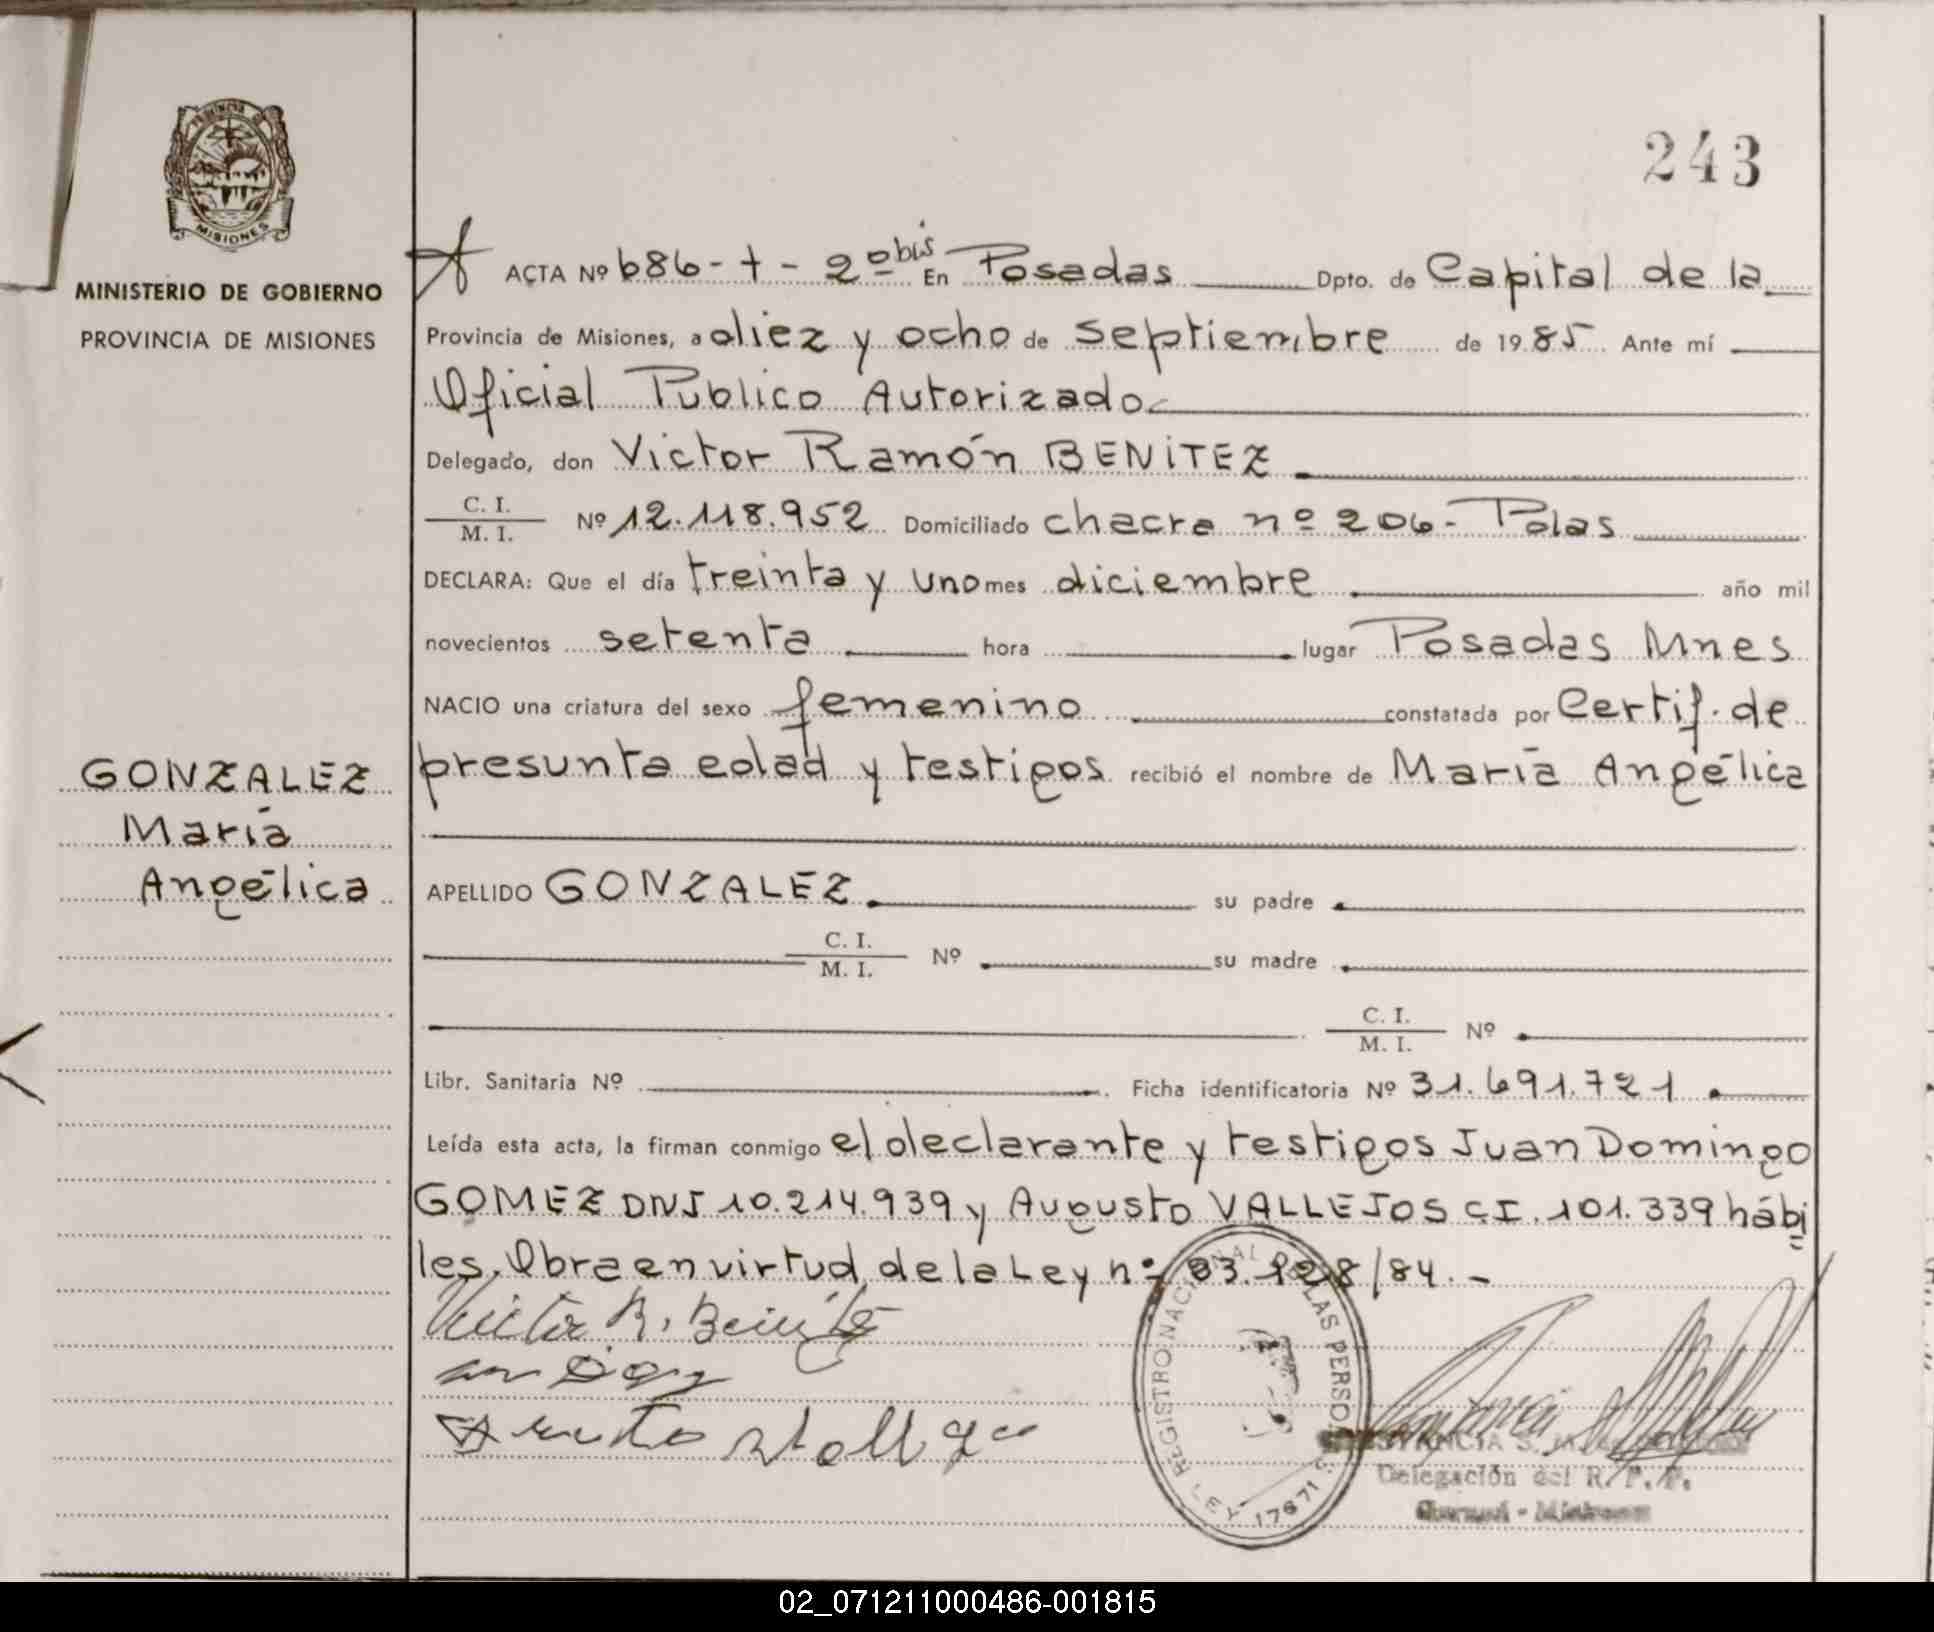 243
PROVINCIA DE
MISIONES
MINISTERIO DE GOBIERNO
PROVINCIA DE MISIONES
ACTA Nº 686-t-2º bis En Posadas Dpto. de Capital de la
Provincia de Misiones, a diez y ocho de septiembre de 1985 Ante mí
Oficial Publico Autorizado
Delegado, don Victor Ramón BENITEZ
C. I.
M. I. Nº 12.118.952 Domiciliado chacra nº 206- Pdas
DECLARA: Que el día treinta y uno mes diciembre año mil
novecientos setenta hora lugar Posadas Mnes
NACIO una criatura del sexo femenino constatada por Certif. de
presunta edad y testigos recibió el nombre de María Angélica
GONZALEZ
María
Angélica
APELLIDO GONZALEZ su padre
C. I.
M. I. Nº su madre
C. I.
M. I. Nº
Libr. Sanitaria Nº Ficha identificatoria Nº 31.691.721
Leída esta acta, la firman conmigo el declarante y testigos Juan Domingo
GOMEZ DNI 10.214.939 y Augusto VALLEJOS C.I. 101.339 hábi
les. Obra en virtud de la Ley nº 23.128/84.-
Victor R. Benitez
REGISTRO NACIONAL DE LAS PERSO
LEY 17671
Delegación del R. P. P.
02_071211000486-001815